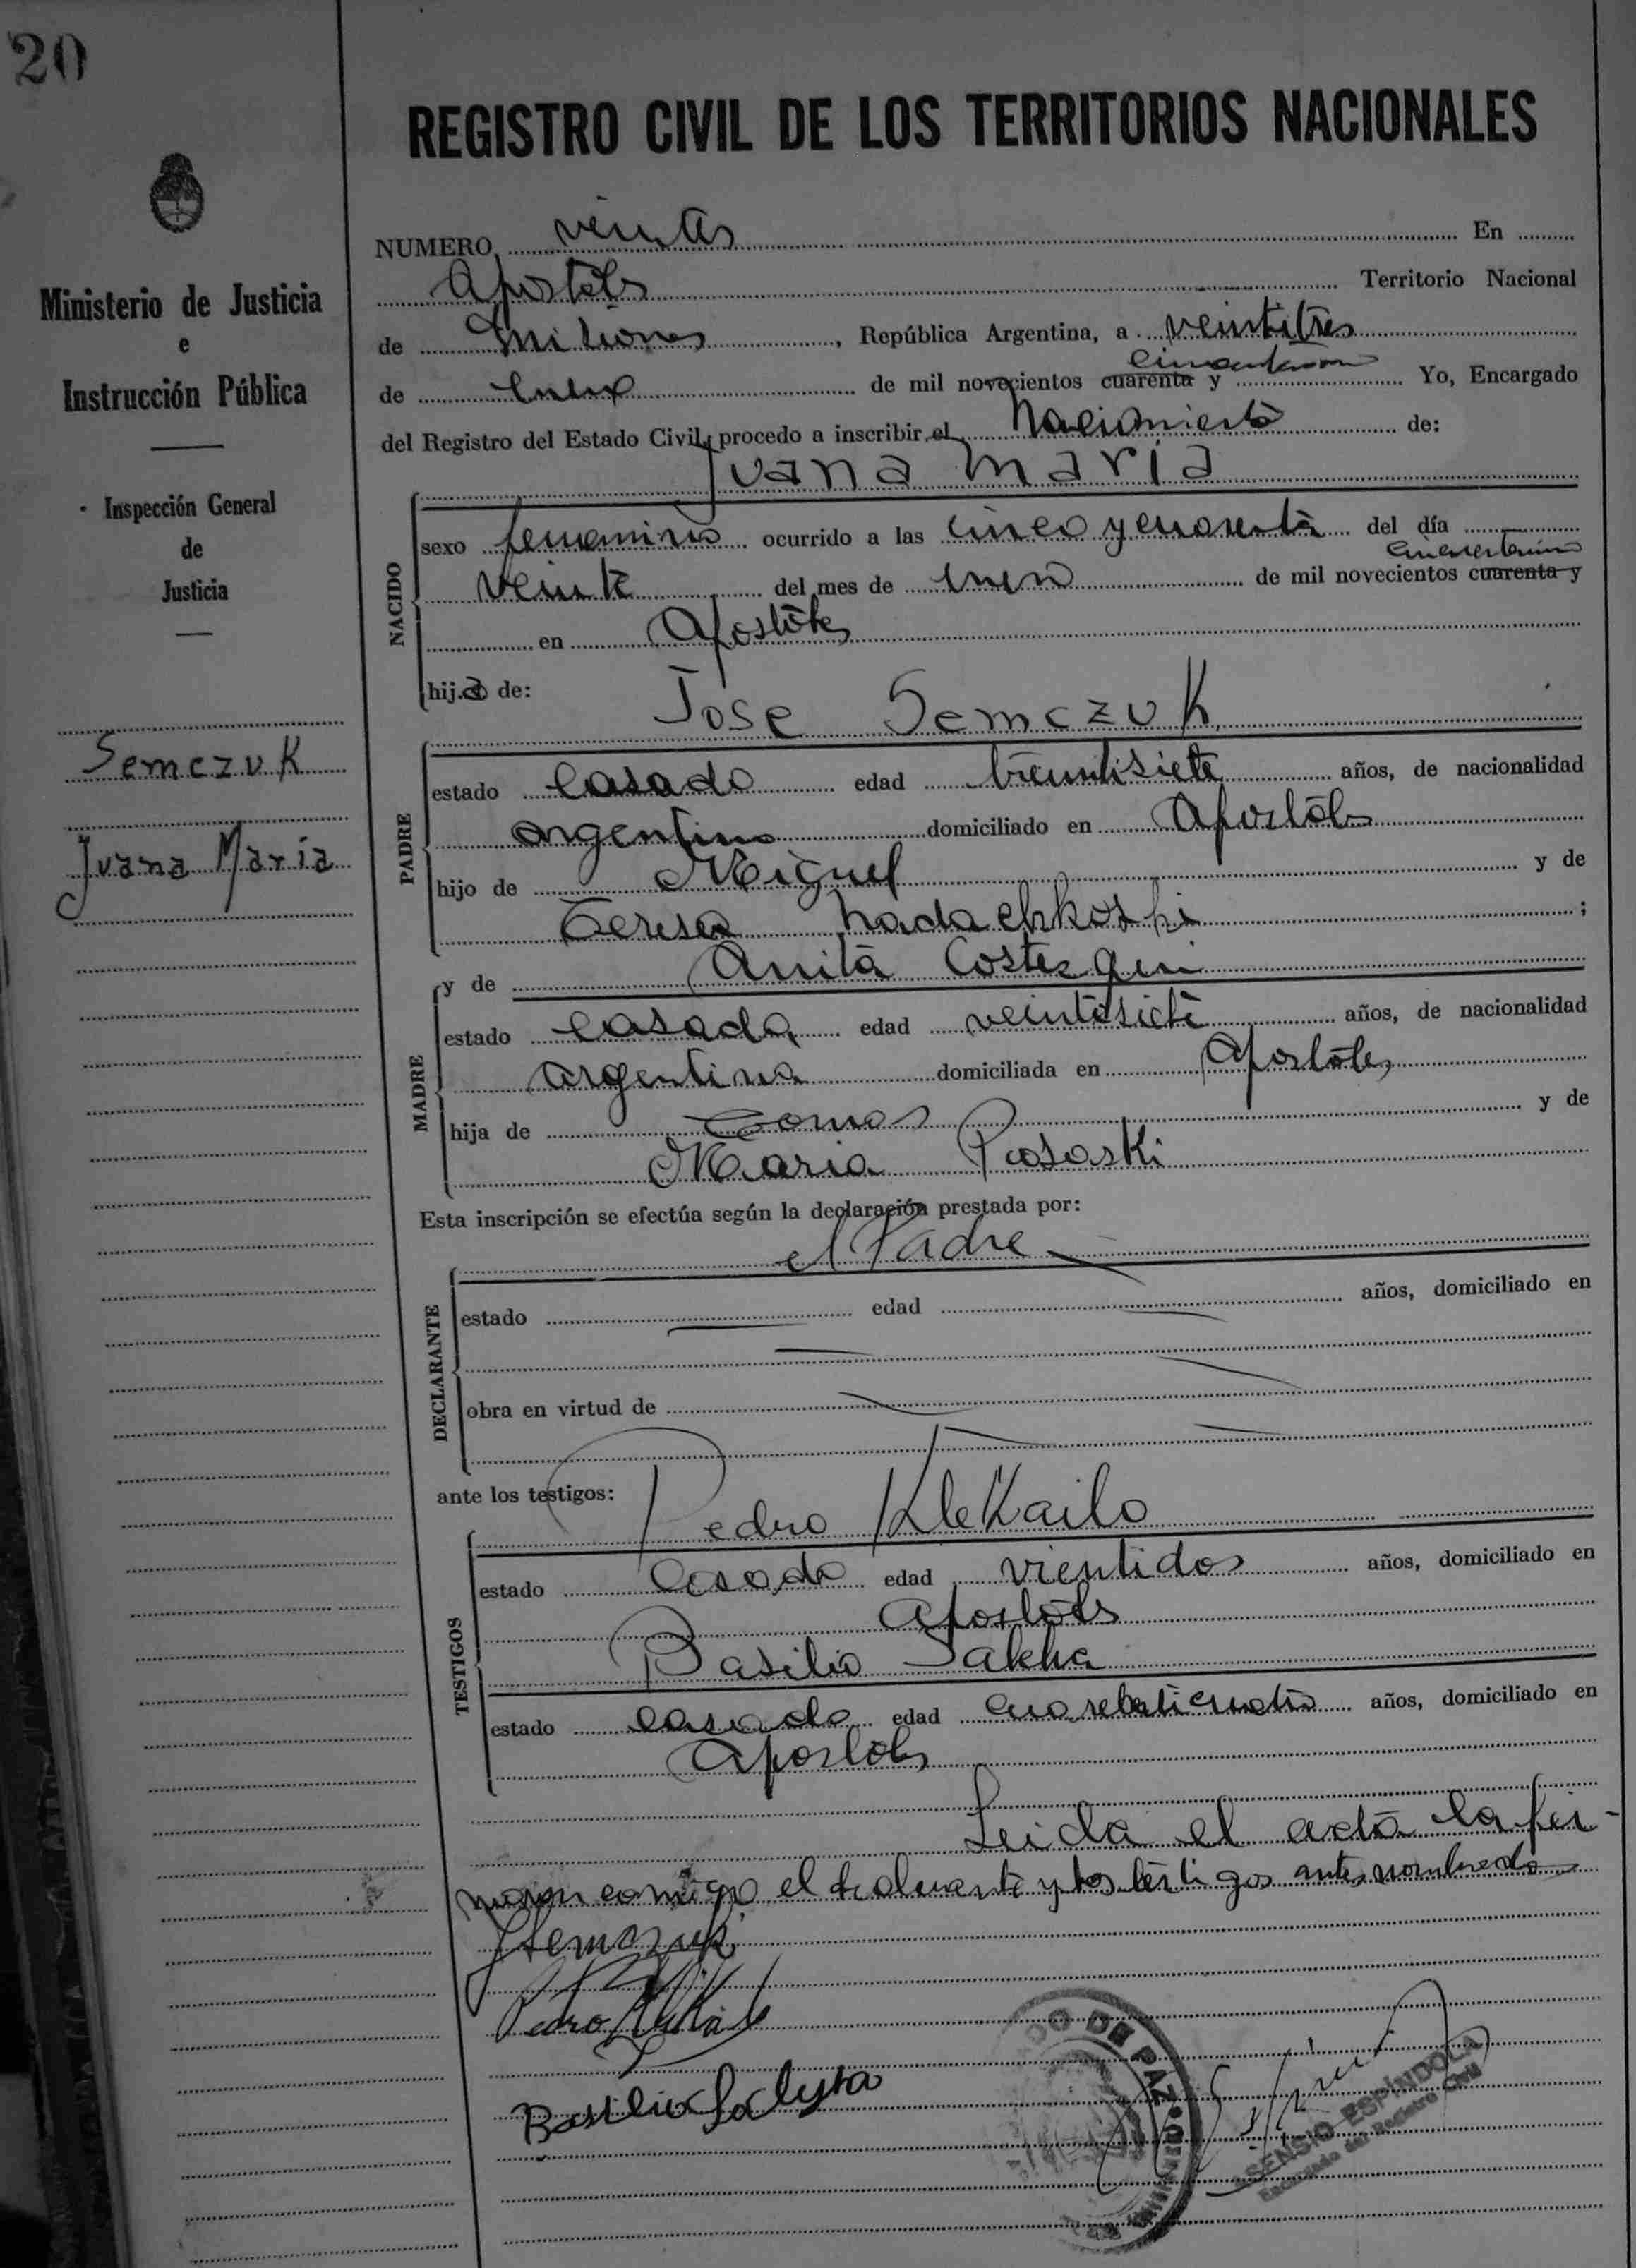 20
REGISTRO CIVIL DE LOS TERRITORIOS NACIONALES
Ministerio de Justicia
e
Instrucción Pública
Inspección General
de
Justicia
Semczuk
Juana María
NUMERO veinte En
Apóstoles Territorio Nacional
de Misiones, República Argentina, a veintitres
de enero de mil novecientos cuarenta y Yo, Encargado
del Registro del Estado Civil, procedo a inscribir el nacimiento de:
Juana María
NACIDO
sexo femenino ocurrido a las cinco y cuarenta del día
veinte del mes de enero de mil novecientos cuarenta y
en Apóstoles
hija de: Jose Semczuk
PADRE
estado casado edad treintisiete años, de nacionalidad
argentino domiciliado en Apóstoles
hijo de Miguel y de
Teresa ;
y de Anita
MADRE
estado casada edad veintisiete años, de nacionalidad
argentina domiciliada en Apóstoles
hija de Tomas y de
Maria
Esta inscripción se efectúa según la declaración prestada por:
el Padre
DECLARANTE
estado edad años, domiciliado en
obra en virtud de
ante los testigos: Pedro Klekailo
TESTIGOS
estado casado edad vientidos años, domiciliado en
Apóstoles
Basilio
estado casado edad años, domiciliado en
Apóstoles
Leida el acta la fir-
maron conmigo el declarante y los testigos antes nombrados
JSemczuk
Pedro Klekailo
Basilio
DO DE PAZ
ASENSIO ESPÍNDOLA
Encargado del Registro Civil